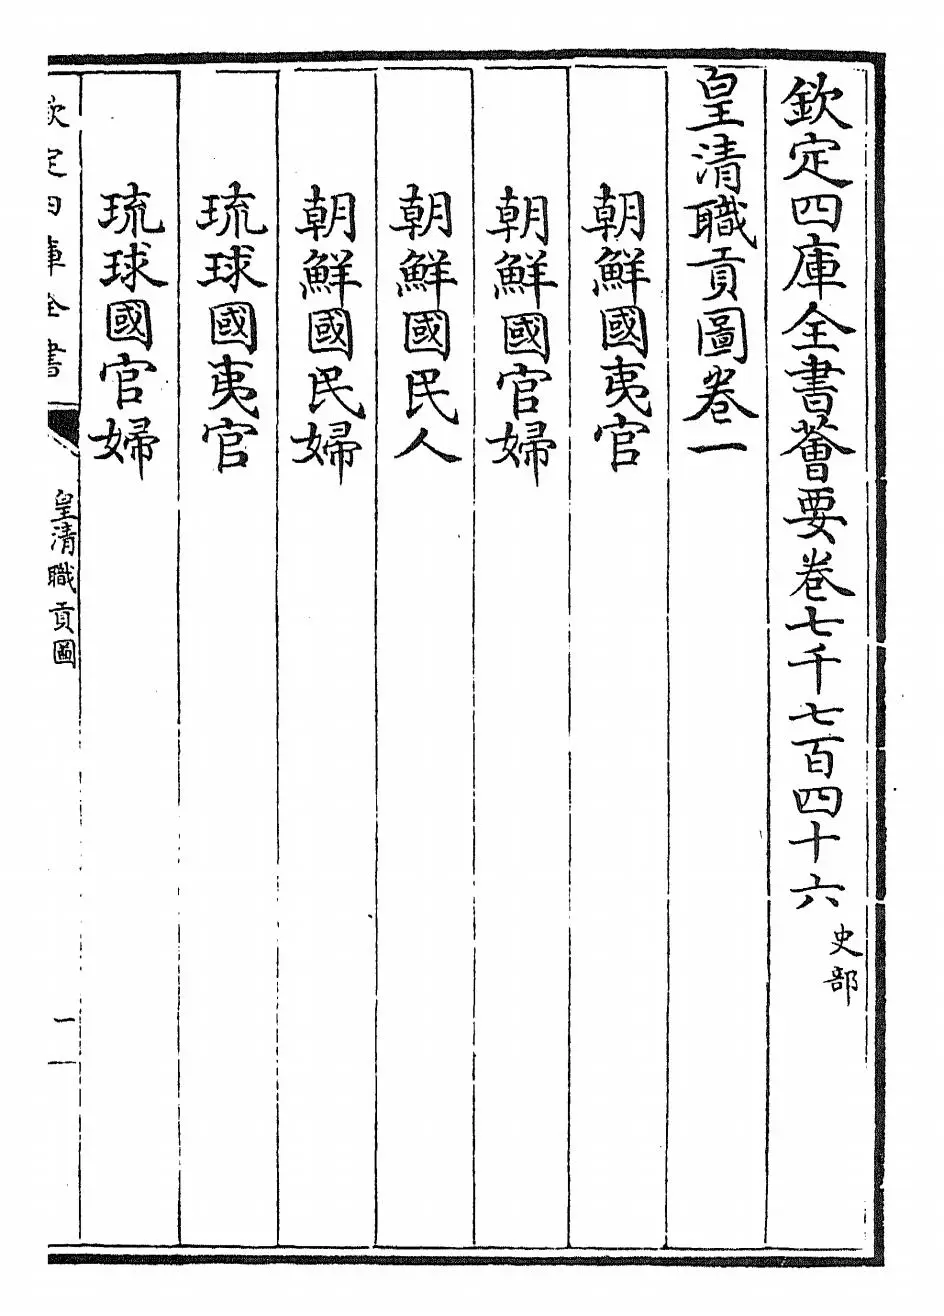 欽定四庫全書薈要卷七千七百四十六 史部
皇清職貢圖卷一
朝鮮國夷官
朝鮮國官婦
朝鮮國民人
朝鮮國民婦
琉球國夷官
琉球國官婦
欽定四庫全書 皇清職貢圖 一